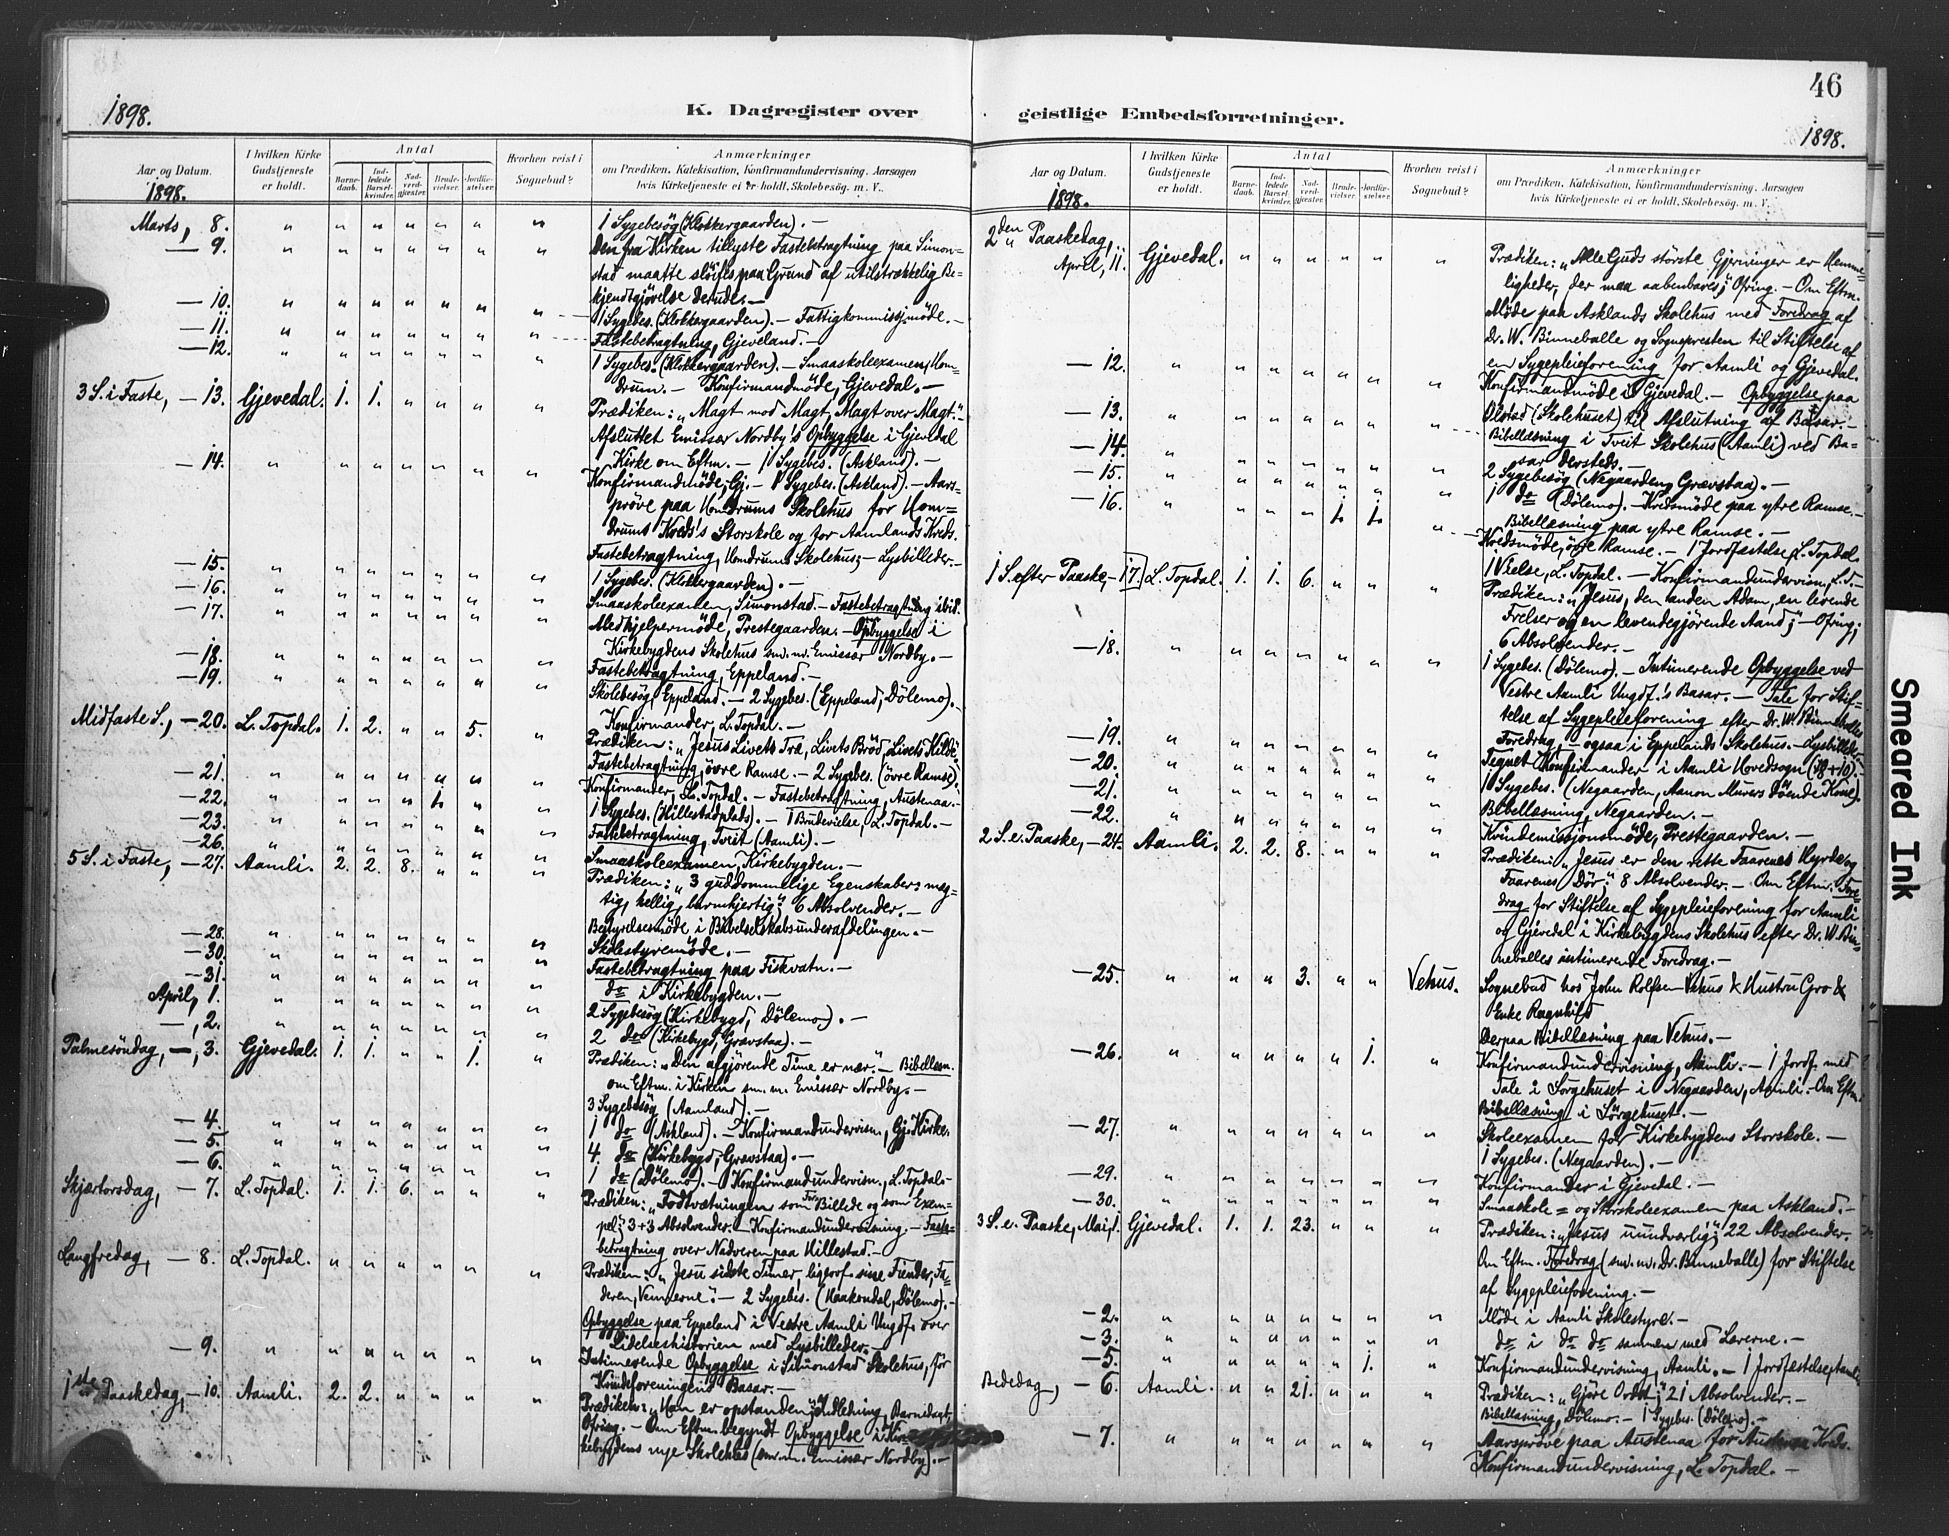 46
1898.
K. Dagregister over
geistlige Embedsforretninger.
1898.
Aar og Datum.
1898.
I hvilken Kirke Gudstjeneste er holdt.
Antal
Barnedaab.
Indledede Barselkvinder.
Nadverdgjester.
Brudevielser.
Jordfæstelser.
Hvorhen reist i Sognebud?
Anmærkninger
om Prædiken, Katekisation, Konfirmandundervisning. Aarsagen
hvis Kirketjeneste ei er holdt. Skolebesøg. m. V.
Marts, 8. " " " " " " " 1 Sygebesög (Klokkergaarden). –
— 9. " " " " " " " Den fra Kirken tillyste Fastebetragtning paa Simon-
stad maatte slöifes paa Grund af utilstrækkelig Be-
kjendtgjörelse derude. –
— 10. " " " " " " " 1 Sygebes. (Klokkergaarden). – Fattigkommissj.möde. –
— 11. " " " " " " " Fastebetragtning, Gjeveland. –
— 12. " " " " " " " 1 Sygebes. (Klokkergaarden). – Smaaskoleexamen, Hom-
drum. – Konfirmandmöde, Gjevedal. –
3 S. i Faste, — 13. Gjevedal. 1. 1. " " " " Prædiken: „Magt mod Magt, Magt over Magt." –
Afsluttet Emissær Nordby's Opbyggelse i Gjevedal
Kirke om Eftm. – 1 Sygebes. (Askland). –
— 14. " " " " " " " Konfirmandmöde, Gj. – 1 Sygebes. (Askland). – Aars-
pröve paa Homdrums Skolehus for Hom-
drums Kreds's Storskole og for Aamlands Kreds.
Fastebetragtning, Homdrums Skolehus; – Lysbilleder. –
— 15. " " " " " " " 1 Sygebes. (Klokkergaarden). –
— 16. " " " " " " " Smaaskoleexamen, Simonstad. – Fastebetragtning ibid.
— 17. " " " " " " " Medhjelpermöde, Prestegaarden. – Opbyggelse i
Kirkebygdens Skolehus sm. m. Emissær Nordby. –
— 18. " " " " " " " Fastebetragtning, Eppeland. –
— 19. " " " " " " " Skolebesög, Eppeland. – 2 Sygebes. (Eppeland, Dölemo). –
Konfirmander, L. Topdal. –
Midfaste S., — 20. L. Topdal. 1. 2. " " 5. " Prædiken: „Jesus Livets Træ, Livets Bröd, Livets Kilde."
Fastebetragtning, övre Ramse. – 2 Sygebes. (övre Ramse). –
— 21. " " " " " " " Konfirmander, L. Topdal. – Fastebetragtning, Austenaa. –
— 22. " " " " 1. " " 1 Sygebes. (Hillestadplads). – 1 Brudevielse, L. Topdal. –
— 23. " " " " " " " Fastebetragtning, Tveit (Aamli). –
— 26. " " " " " " " Smaaskoleexamen, Kirkebygden. –
5 S. i Faste, — 27. Aamli. 2. 2. 8. " " " Prædiken: „3 guddommelige Egenskaber: mæg-
tig, hellig, barmhjertig." 6 Absolvender. –
— 28. " " " " " " " Bestyrelsesmöde i Bibelselskabsunderafdelingen. –
— 30. " " " " " " " Skolestyremöde. –
— 31. " " " " " " " Fastebetragtning paa Fiskvatn. –
April, 1. " " " " " " " do i Kirkebygden. –
—, 2. " " " " " " " 2 Sygebesög (Kirkebygd, Dölemo). –
2 do (Kirkebygd, Grævstaa). –
Palmesöndag, —, 3. Gjevedal. 1. 1. " " 1. " Prædiken: „Den afgjörende Time er nær." – Bibellæsn.
om Eftm. i Kirken sm. m. Emissær Nordby. –
3 Sygebesög (Aamland). –
— 4. " " " " " " " 1 do (Askland). – Konfirmandundervisn., Gj. Kirke.
— 5. " " " " " " " 4. do (Kirkebygd, Grævstaa). –
— 6. " " " " " " " 1 do (Dölemo). – Konfirmandundervisn., L. Topdal. –
Skjærtorsdag, — 7. L. Topdal. 1. 1. 6. " " " Prædiken: „Fodtvætningen som Billede og som Exem-
pel." 3 + 3 Absolvender. – Konfirmandundervisning. – Faste-
betragtning over Nadveren paa Hillestad. –
Langfredag, — 8. L. Topdal. " " " " " " Prædiken: „Jesu sidste Timer, ligeoverf. sine Fiender, Fa-
deren, Vennerne." – 2 Sygebes. (Haakondal, Dölemo). –
Opbyggelse paa Eppeland i Vestre Aamli Ungdf. over
Lidelseshistorien med Lysbilleder. –
— 9. " " " " " " " Intimerende Opbyggelse i Simonstad Skolehus, för
Kvindeforeningens Basar. –
1ste Paaskedag, — 10. Aamli. 2. 2. " " " " Prædiken: „Han er opstanden." Indledning, Barnedaab.
Ofring. – Om Eftm. begyndt Opbyggelse i Kir-
kebygdens nye Skolehus (sm. m. Emissær Nordby). –
Aar og Datum.
1898.
I hvilken Kirke Gudstjeneste er holdt.
Antal
Barnedaab.
Indledede Barselkvinder.
Nadverdgjester.
Brudevielser.
Jordfæstelser.
Hvorhen reist i Sognebud?
Anmærkninger
om Prædiken, Katekisation, Konfirmandundervisning. Aarsagen
hvis Kirketjeneste ei er holdt. Skolebesøg. m. V.
2den Paaskedag,
April, 11. Gjevedal. " " " " " " Prædiken: „Alle Guds störste Gjerninger er Hemme-
ligheder, der maa aabenbares; Ofring. – Om Eftm.
Möde paa Asklands Skolehus med Foredrag af
Dr. W. Binneballe og Sognepresten til Stiftelse af
en Sygepleieforening for Aamli og Gjevedal.
— 12. " " " " " " " Konfirmandmöde i Gjevedal. – Opbyggelse paa
Ølstad (Skolehuset) til Afslutning af Basar. –
— 13. " " " " " " " Bibellæsning i Tveit Skolehus (Aamli) ved Ba-
sar dersteds. –
— 14. " " " " " " " 2 Sygebesög (Negaarden, Grævstaa). –
— 15. " " " " " " " 1 do (Dölemo). – Kredsmöde paa ytre Ramse. –
Bibellæsning paa ytre Ramse. –
— 16. " " " " 1. 1. " Kredsmöde, övre Ramse. – 1 Jordfæstelse, L. Topdal.
1 Vielse, L. Topdal. – Konfirmandundervisn., L. T. –
1 S. efter Paaske, — 17. L. Topdal. 1. 1. 6. " " " Prædiken: „Jesus, den anden Adam, en levende
Frelser og en levendegjörende Aand; – Ofring;
6 Absolvender. –
— 18. " " " " " " " 1 Sygebes. (Dölemo). – Intimerende Opbyggelse ved
Vestre Aamli Ungdf.'s Basar. – Tale for Stif-
telse af Sygepleieforening efter Dr. W. Binneballes
Foredrag, – ogsaa i Eppelands Skolehus. – Lysbilleder. –
— 19. " " " " " " " Tegnet Konfirmander i Aamli Hovedsogn (18 + 10). –
— 20. " " " " " " " 1 Sygebes. (Negaarden, Aanon Murers döende Kone).
— 21. " " " " " " " Bibellæsning, Negaarden. –
— 22. " " " " " " " Kvindemissionsmöde, Prestegaarden. –
2 S. e. Paaske, — 24. Aamli. 2. 2. 8. " " " Prædiken: „Jesus er den rette Faarenes Hyrde og
Faarenes Dör." 8 Absolvender. – Om Eftm. Fore-
drag for Stiftelse af Sygepleieforening for Aamli
og Gjevedal i Kirkebygdens Skolehus efter Dr. W. Bin-
neballes intimerende Foredrag. –
— 25. " " " 3. " " Vehus. Sognebud hos John Rolfsen Vehus & Hustru Gro &
Enke Ragnhild
Derpaa Bibellæsning paa Vehus. –
— 26. " " " " " 1. " Konfirmandundervisning, Aamli. – 1 Jordf. med
Tale i Sörgehuset i Negaarden, Aamli. – Om Eftm.
Bibellæsning i Sörgehuset. –
— 27. " " " " " " " Skoleexamen for Kirkebygdens Storskole. –
1 Sygebes. (Negaarden). –
— 29. " " " " " " " Konfirmander i Gjevedal. –
— 30. " " " " " " " Smaaskole= og Storskoleexamen paa Askland. –
3 S. e. Paaske, Mai, 1. Gjevedal. 1. 1. 23. " " " Prædiken: „Jesus uundværlig"; 22 Absolvender.
Om Eftm. Foredrag (sm. m. Dr. Binneballe) for Stiftelse
af Sygepleieforening. –
— 2. " " " " " " " Möde i Aamli Skolestyre. –
— 3. " " " " " " " do i do do sammen med Lærerne. –
— 5. " " " " " 1. " Konfirmandundervisning, Aamli. – 1 Jordfæstelse, Aamli.
Bededag, — 6. Aamli. " " 21. " " " Prædiken: „Gjöre Ordet;" 21 Absolvender. –
Bibellæsning, Dölemo. – 1 Sygebes. (Dölemo). –
— 7. " " " " " " " Aarspröve paa Austenaa for Austenaa Kreds.
Konfirmandundervisning, L. Topdal. –
Smeared Ink